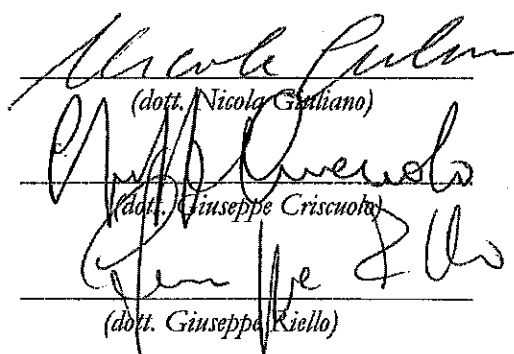 Nicola Giuliano
(dott. Nicola Giuliano)
Giuseppe Criscuolo
(dott. Giuseppe Criscuolo)
Giuseppe Riello
(dott. Giuseppe Riello)